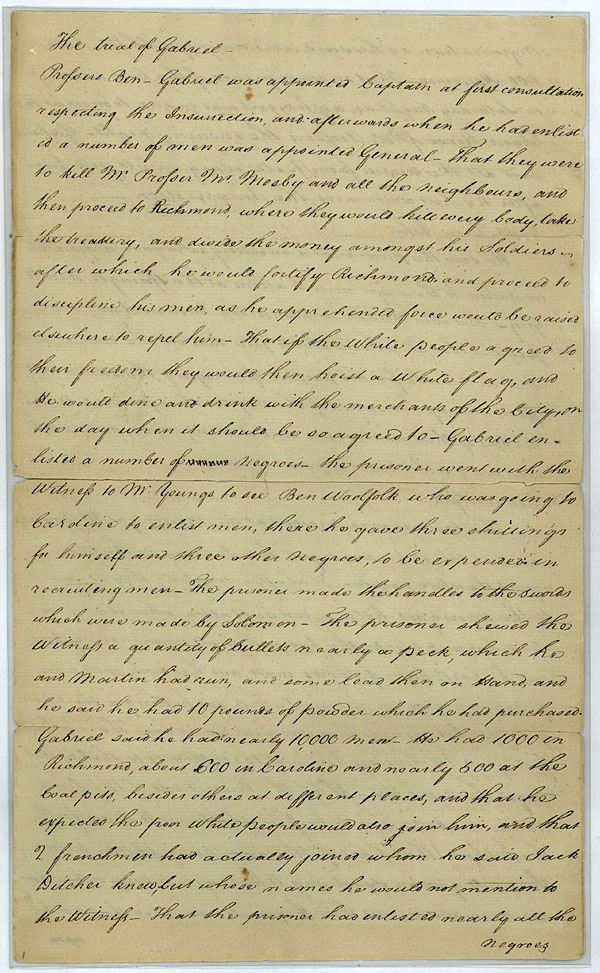 The trial of Gabriel –
Prossers Ben – Gabriel was appointed Captain at first consultation
respecting the Insurrection, and afterwards when he had enlist
ed a number of men was appointed General – That they were
to kill Mr Prosser Mr. Mosby and all the neighbours, and
then proceed to Richmond, where they would kill every body, take
the treasury, and divide the money amongst his Soldiers –
after which he would fortify Richmond and proceed to
discipline his men, as he apprehended force would be raised
elsewhere to repell him – That if the White people agreed to
their freedom they would then hoist a White flag, and
He would dine and drink with the merchants of the City, on
the day when it should be so agreed to – Gabriel en=
listed a number of Negroes – the prisoner went with the
Witness to Mr. Youngs to see Ben Woolfolk who was going to
Caroline to enlist men, there he gave three shillings
for himself and three other Negroes, to be expended in
recruiting men – The prisoner made the handles to the swords
which were made by Solomon – The prisoner shewed the
Witness a quantity of bullets nearly a peck, which he
and Martin had run, and some lead then on Hand, and
he said he had 10 pounds of Powder which he had purchased.
Gabriel said he had nearly 10,000 Men – He had 1000 in
Richmond, about 600 in Caroline and nearly 500 at the
Coal pits, besides others at different places, and that he
expected the poor White people would also join him, and that
2 frenchmen had actually joined whom he said Jack
Ditcher knew, but whose names he would not mention to
the Witness – That the prisoner had enlisted nearly all the
Negroes